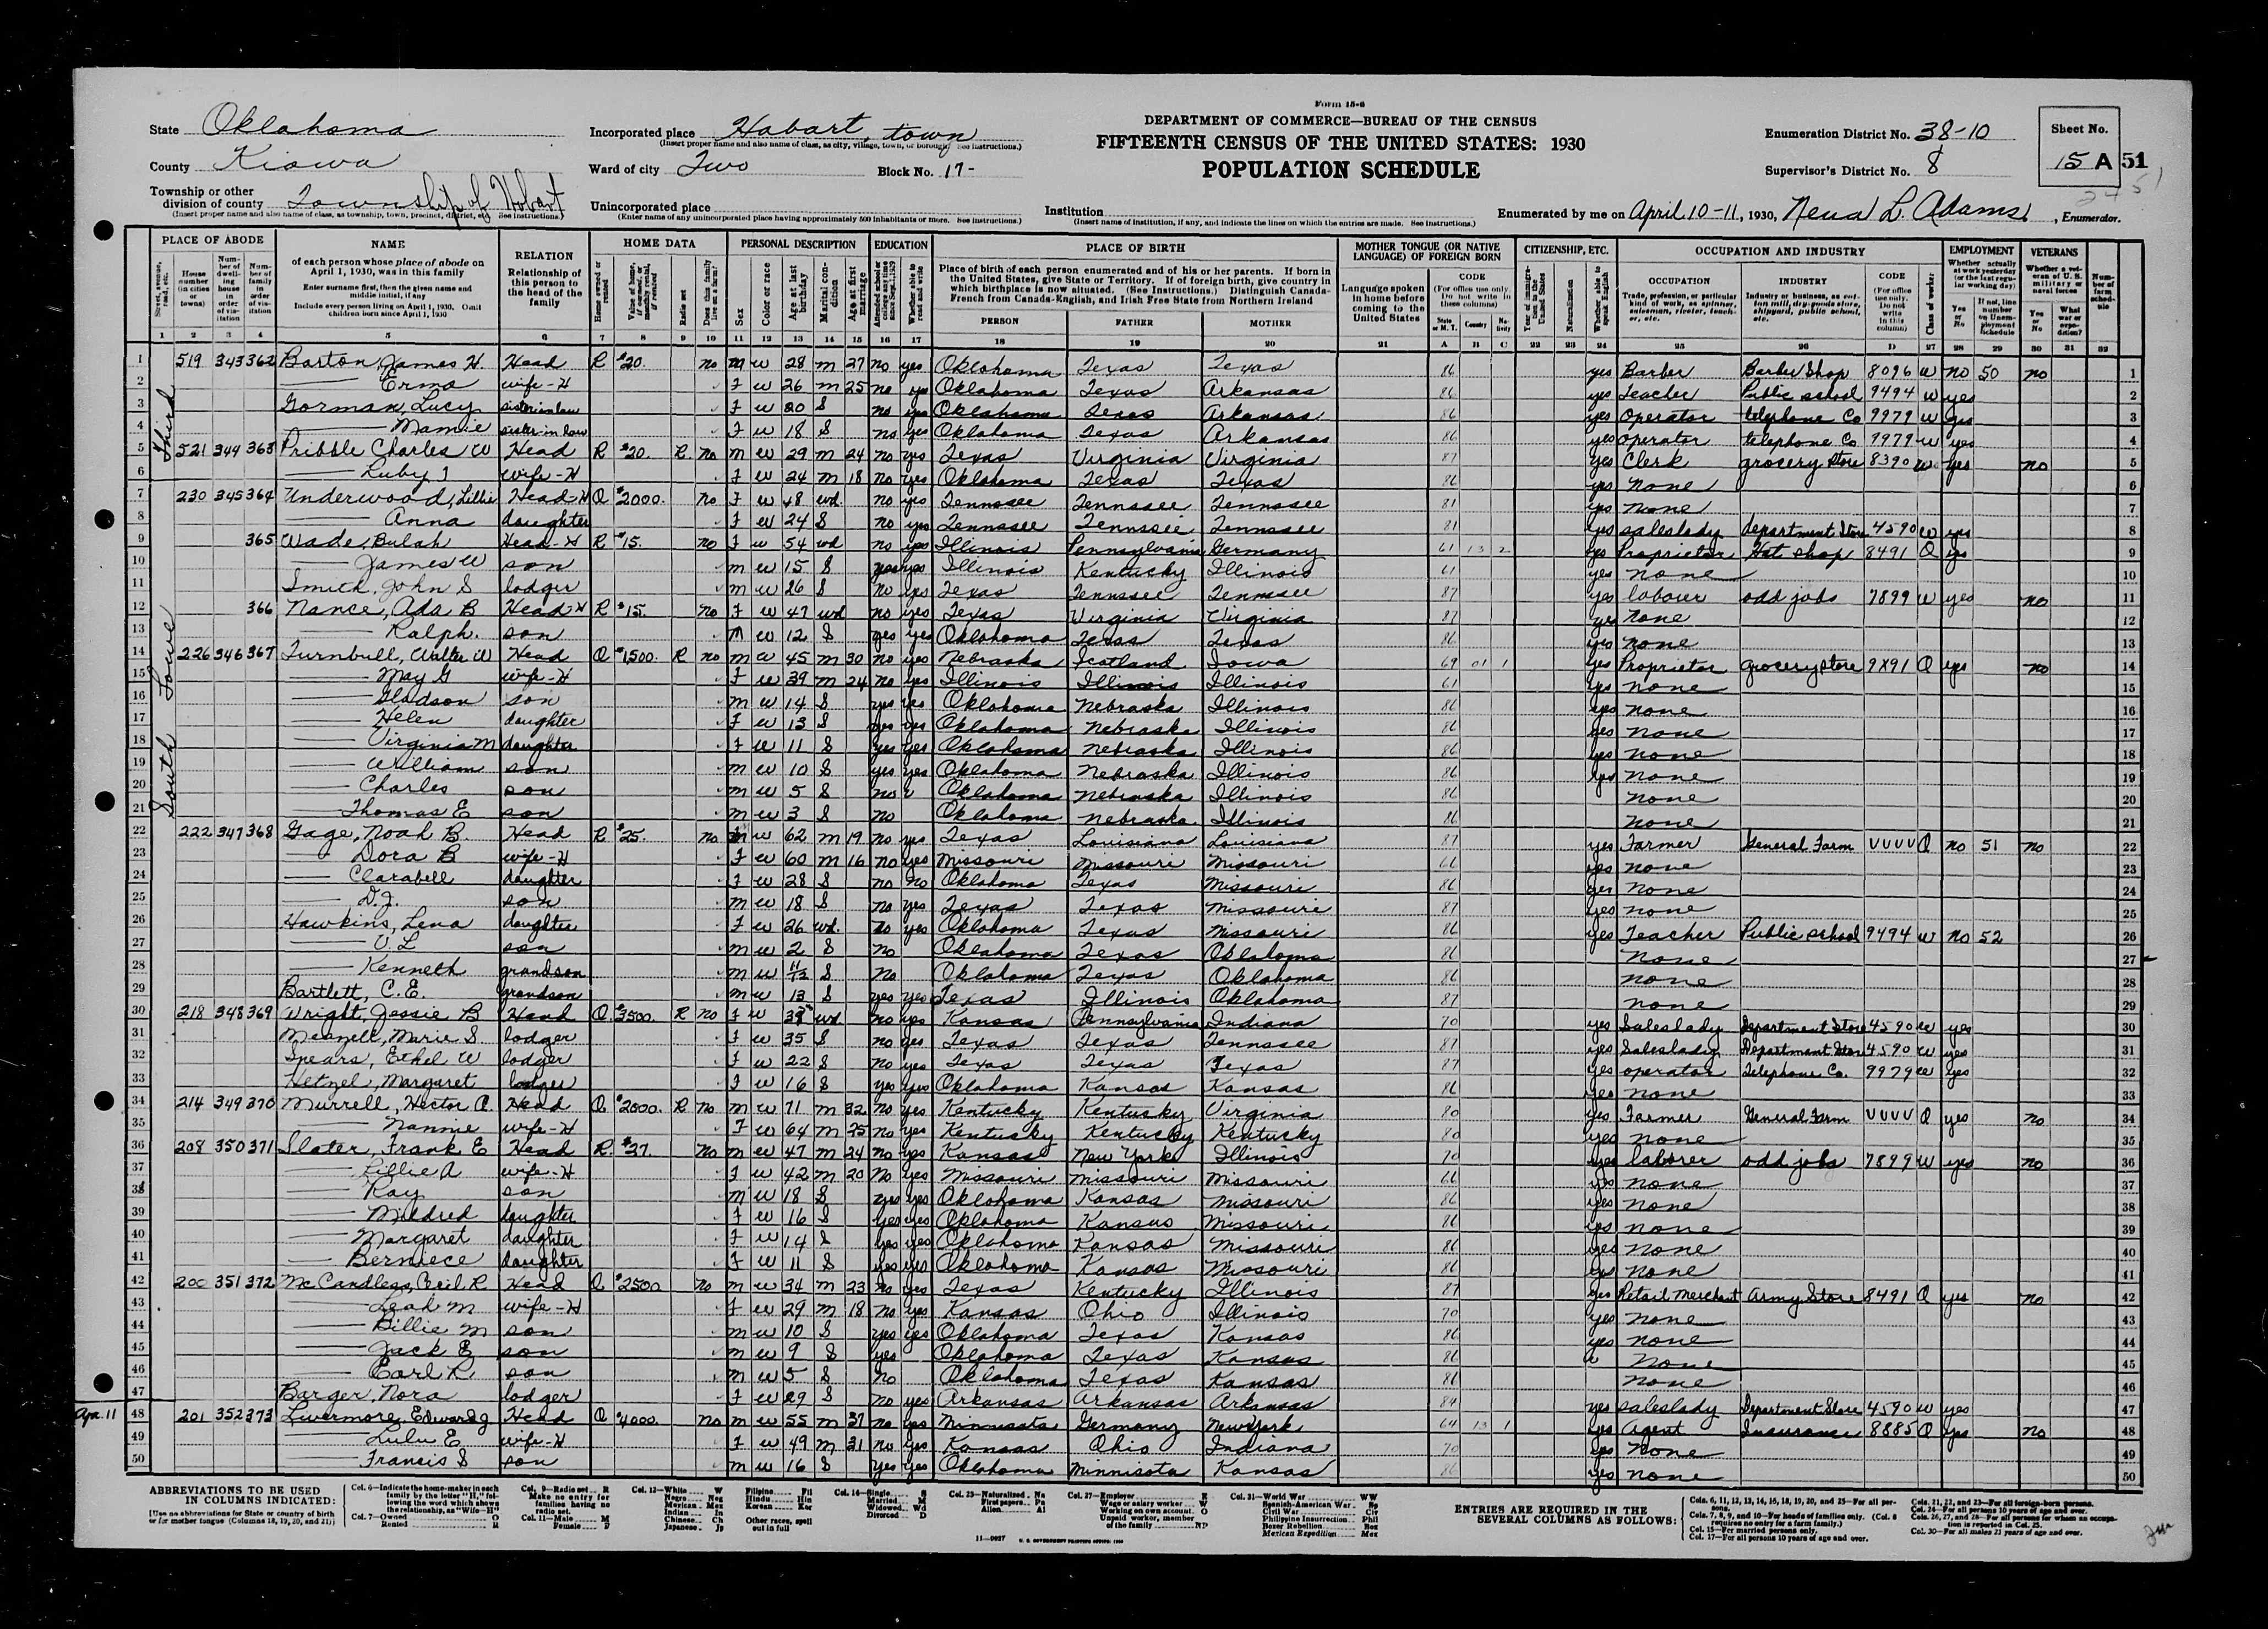 Form 15-6
DEPARTMENT OF COMMERCE—BUREAU OF THE CENSUS
FIFTEENTH CENSUS OF THE UNITED STATES: 1930
POPULATION SCHEDULE
State Oklahoma
County Kiowa
Township or other division of county Township of Hobart
(Insert proper name and also name of class, as township, town, precinct, district, etc. See instructions.)
Incorporated place Hobart, town
(Insert proper name and also name of class, as city, village, town, or borough. See instructions.)
Ward of city Two Block No. 17-
Unincorporated place
(Enter name of any unincorporated place having approximately 500 inhabitants or more. See instructions.)
Institution
(Insert name of institution, if any, and indicate the lines on which the entries are made. See instructions.)
Enumeration District No. 38-10
Supervisor's District No. 8
Sheet No. 15 A 51
Enumerated by me on April 10-11, 1930, Nena L. Adams, Enumerator.
PLACE OF ABODE NAME RELATION HOME DATA PERSONAL DESCRIPTION EDUCATION PLACE OF BIRTH MOTHER TONGUE (OR NATIVE LANGUAGE) OF FOREIGN BORN CITIZENSHIP, ETC. OCCUPATION AND INDUSTRY EMPLOYMENT VETERANS
Third
South Lowe
1 519 343 362 Barton, James H. Head R $20. no m w 28 m 27 no yes Oklahoma Texas Texas 86 yes Barber Barber Shop 8096 w no 50 no 1
2 —— Erma wife-H F w 26 m 25 no yes Oklahoma Texas Arkansas 86 yes Teacher Public school 9494 w yes 2
3 Gorman, Lucy sister in law F w 20 S no yes Oklahoma Texas Arkansas 86 yes Operator telephone Co 9979 w yes 3
4 —— Mamie sister-in law F w 18 S no yes Oklahoma Texas Arkansas 86 yes operator telephone Co 9979 w yes 4
5 521 344 363 Pribble Charles W Head R $20. R no m w 29 m 24 no yes Texas Virginia Virginia 87 yes Clerk grocery store 8390 w yes no 5
6 —— Ruby I wife-H F w 24 m 18 no yes Oklahoma Texas Texas 86 yes none 6
7 230 345 364 Underwood, Lillie Head-H O $2000. no F w 48 wd. no yes Tennessee Tennessee Tennessee 81 yes none 7
8 —— Anna daughter F w 24 S no yes Tennessee Tennessee Tennessee 81 yes saleslady department Store 4590 w yes 8
9 365 Wade, Bulah Head-H R $15. no F w 54 wd no yes Illinois Pennsylvania Germany 61 13 2 yes Proprietor Hat shop 8491 O yes 9
10 —— James W son m w 15 S yes yes Illinois Kentucky Illinois 61 yes none 10
11 Smith, John S lodger m w 26 S no yes Texas Tennessee Tennessee 87 yes laborer odd jobs 7899 w yes no 11
12 366 Nance, Ada B Head-H R $15. no F w 47 wd no yes Texas Virginia Virginia 87 yes none 12
13 —— Ralph. son m w 12 S yes yes Oklahoma Texas Texas 86 yes none 13
14 226 346 367 Turnbull, Walter W Head O $1,500. R no m w 45 m 30 no yes Nebraska Scotland Iowa 69 01 1 yes Proprietor grocery store 9X91 O yes no 14
15 —— May G wife-H F w 39 m 24 no yes Illinois Illinois Illinois 61 yes none 15
16 —— Gladson son m w 14 S yes yes Oklahoma Nebraska Illinois 86 yes none 16
17 —— Helen daughter F w 13 S yes yes Oklahoma Nebraska Illinois 86 yes none 17
18 —— Virginia M daughter F w 11 S yes yes Oklahoma Nebraska Illinois 86 yes none 18
19 —— William son m w 10 S yes yes Oklahoma Nebraska Illinois 86 yes none 19
20 —— Charles son m w 5 S no Oklahoma Nebraska Illinois 86 none 20
21 —— Thomas E son m w 3 S no Oklahoma Nebraska Illinois 86 none 21
22 222 347 368 Gage, Noah B. Head R $25. no m w 62 m 19 no yes Texas Louisiana Louisiana 87 yes Farmer General Farm VVVV O no 51 no 22
23 —— Dora B wife-H F w 60 m 16 no yes Missouri Missouri Missouri 66 yes none 23
24 —— Clarabell daughter F w 28 S no no Oklahoma Texas Missouri 86 yes none 24
25 —— D.J. son m w 18 S no yes Texas Texas Missouri 87 yes none 25
26 Hawkins, Lena daughter F w 26 wd. no yes Oklahoma Texas Missouri 86 yes Teacher Public school 9494 w no 52 26
27 —— V L son m w 2 S no Oklahoma Texas Oklahoma 86 none 27
28 —— Kenneth grandson m w 11/12 S no Oklahoma Texas Oklahoma 86 none 28
29 Bartlett, C.E. grandson m w 13 S yes yes Texas Illinois Oklahoma 87 none 29
30 218 348 369 Wright, Jessie B Head O $3500. R no F w 39 wd no yes Kansas Pennsylvania Indiana 70 yes Saleslady Department Store 4590 w yes 30
31 Marie S lodger F w 35 S no yes Texas Texas Tennessee 87 yes Saleslady Department Store 4590 w yes 31
32 Spears, Ethel W lodger F w 22 S no yes Texas Texas Texas 87 yes operator Telephone Co. 9979 w yes 32
33 Hetzel, Margaret lodger F w 16 S yes yes Oklahoma Kansas Kansas 86 yes none 33
34 214 349 370 Murrell, Hector A. Head O $2000. R no m w 71 m 32 no yes Kentucky Kentucky Virginia 80 yes Farmer General Farm VVVV O yes no 34
35 —— Nannie wife-H F w 64 m 25 no yes Kentucky Kentucky Kentucky 80 yes none 35
36 208 350 371 Slater, Frank E Head R. $27. no m w 47 m 24 no yes Kansas New York Illinois 70 yes laborer odd jobs 7899 w yes no 36
37 —— Lillie A wife-H F w 42 m 20 no yes Missouri Missouri Missouri 66 yes none 37
38 —— Ray son m w 18 S yes yes Oklahoma Kansas Missouri 86 yes none 38
39 —— Mildred daughter F w 16 S yes yes Oklahoma Kansas Missouri 86 yes none 39
40 —— Margaret daughter F w 14 S yes yes Oklahoma Kansas Missouri 86 yes none 40
41 —— Berniece daughter F w 11 S yes yes Oklahoma Kansas Missouri 86 yes none 41
42 200 351 372 McCandless, Cecil R Head O $2500 no m w 34 m 23 no yes Texas Kentucky Illinois 87 yes Retail Merchant Army Store 8491 O yes no 42
43 —— Leah M wife-H F w 29 m 18 no yes Kansas Ohio Illinois 70 yes none 43
44 —— Billie M son m w 10 S yes yes Oklahoma Texas Kansas 86 yes none 44
45 —— Jack E son m w 9 S yes Oklahoma Texas Kansas 86 none 45
46 —— Earl R son m w 5 S no Oklahoma Texas Kansas 86 none 46
47 Barger, Nora lodger F w 29 S no yes Arkansas Arkansas Arkansas 84 yes saleslady Department Store 4590 w yes 47
Apr. 11 48 201 352 373 Livermore, Edward G Head O $4000. no m w 55 m 37 no yes Minnesota Germany New York 64 13 1 yes agent Insurance 8885 O yes no 48
49 —— Lulu E wife-H F w 49 m 31 no yes Kansas Ohio Indiana 70 yes none 49
50 —— Francis S son m w 16 S yes yes Oklahoma Minnisota Kansas 86 yes none 50
ABBREVIATIONS TO BE USED IN COLUMNS INDICATED:
ENTRIES ARE REQUIRED IN THE SEVERAL COLUMNS AS FOLLOWS: